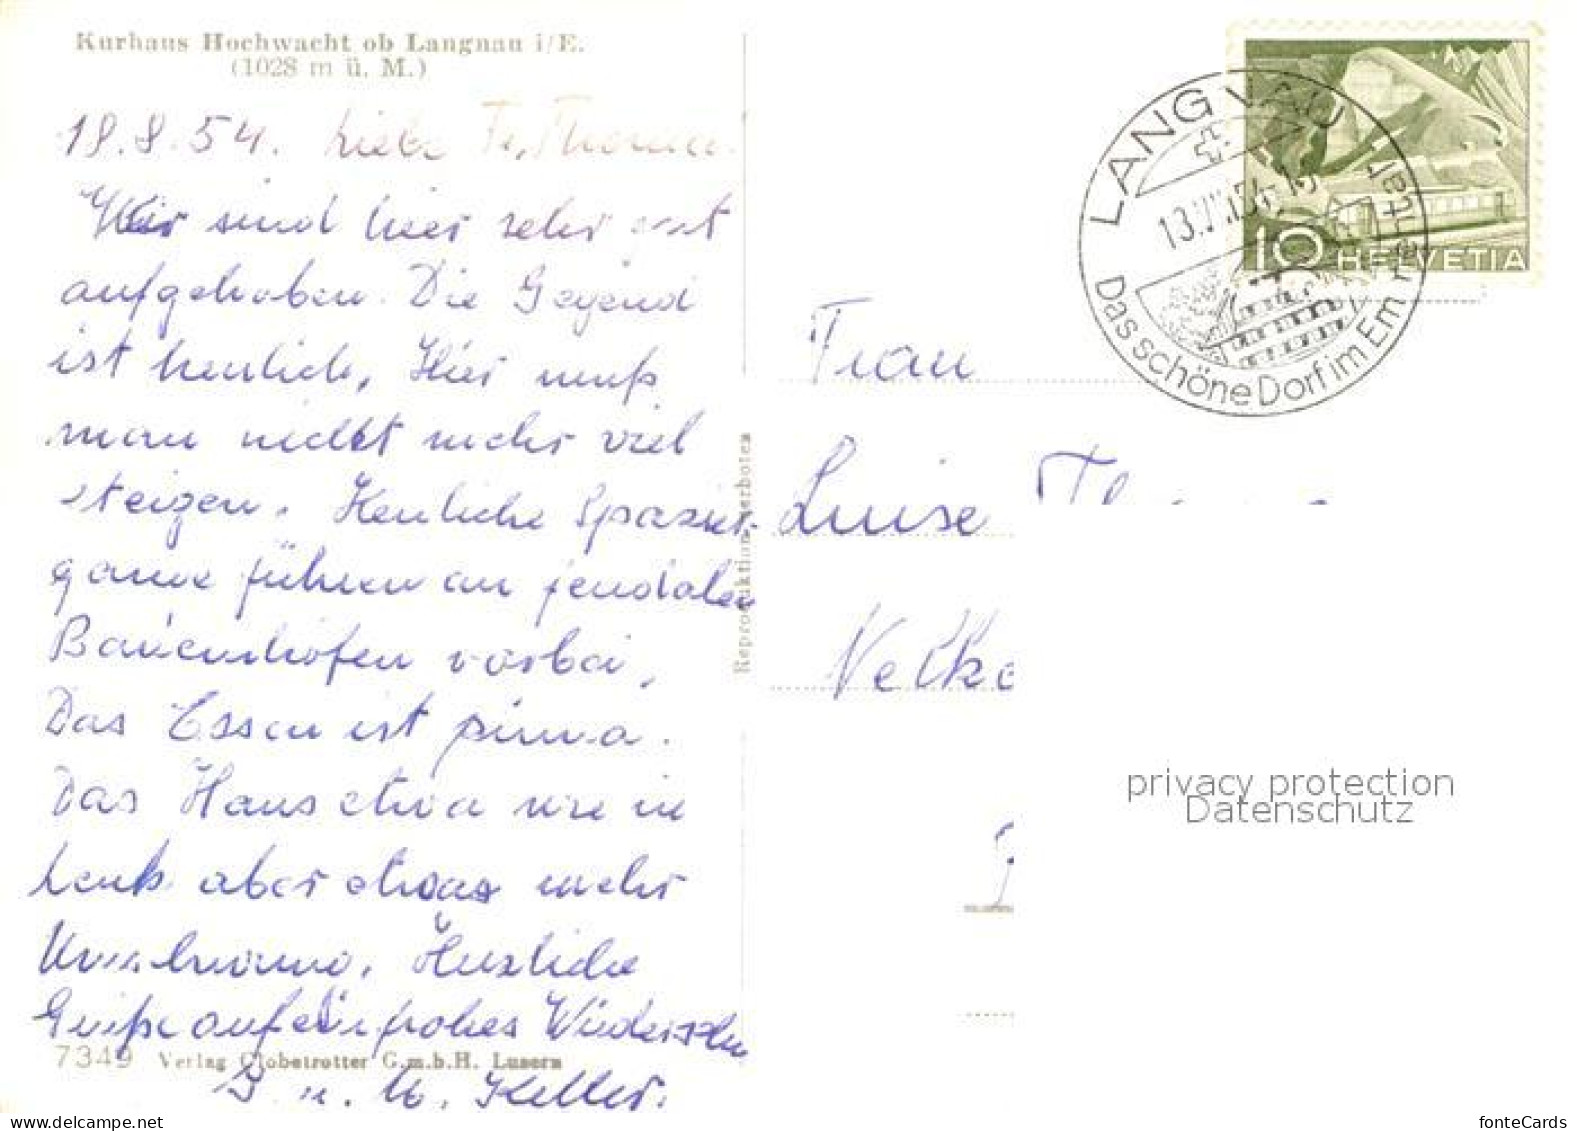 Kurhaus Hochwacht ob Langnau i/E.
(1028 m ü. M.)
18.8.54. Liebe Fr.
Wir sind hier sehr gut
aufgehoben. Die Gegend
ist herrlich, Hier muß
man nicht mehr viel
steigen. Herrliche Spazier-
gänge führen an feudalen
Bauernhöfen vorbei,
Das Essen ist prima.
Das Haus etwa wie in
Lenk aber etwas mehr
Herzliche
Grüße auf ein frohes Wiedersehn
7349 Verlag Globetrotter G.m.b.H. Luzern
Keller.
Reproduktion verboten
LANGNAU
Das schöne Dorf im Emmental
10 HELVETIA
Frau
Luise
privacy protection
Datenschutz
www.delcampe.net
fonteCards